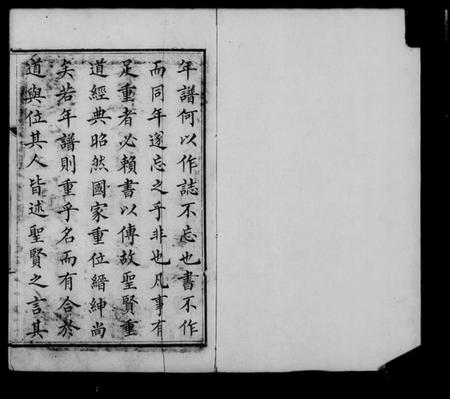 年譜何以作誌不忘也書不作
而同年遂忘之乎非也凡事有
足重者必賴書以傳故聖賢重
道經典昭然國家重位縉紳尚
矣若年譜則重乎名而有合於
道與位其人皆述聖賢之言其